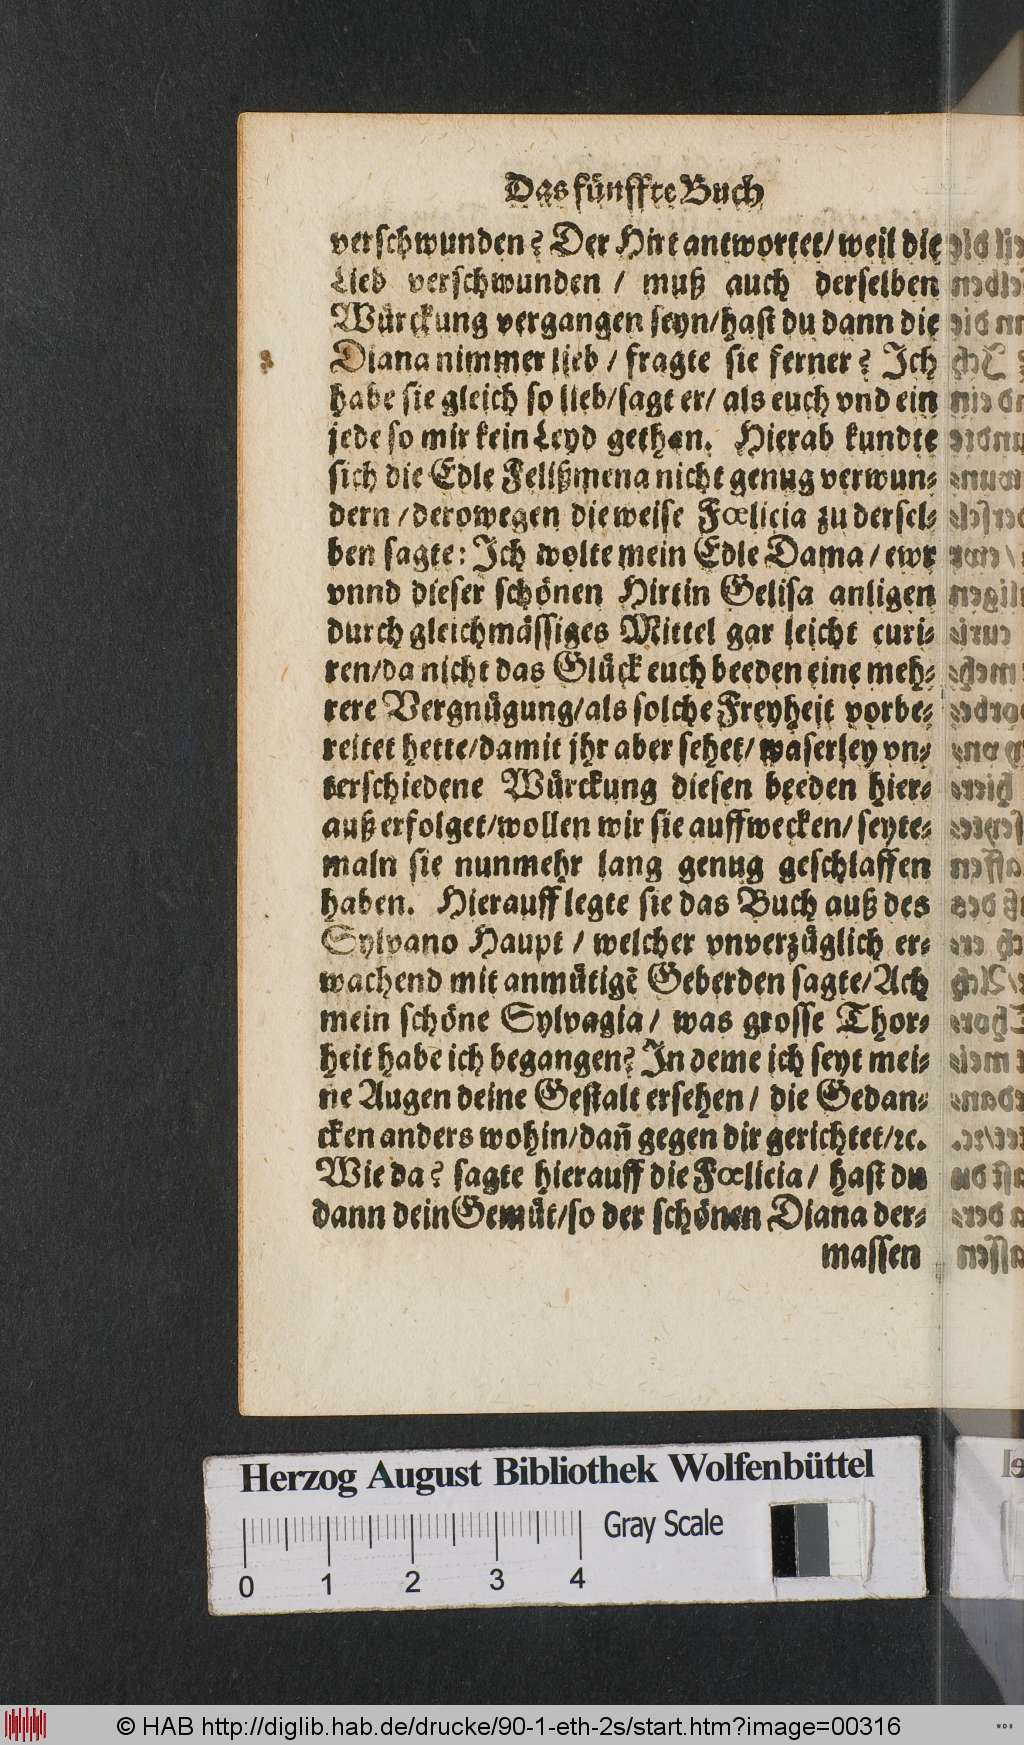 Das fünffte Buch
verschwunden? Der Hirt antwortet/ weil die
Lieb verschwunden / muß auch derselben
Würckung vergangen seyn/ hast du dann die
Diana nimmer lieb / fragte sie ferner? Ich
habe sie gleich so lieb/ sagt er/ als euch vnd ein
jede so mir kein Leyd gethan. Hierab kundte
sich die Edle Felißmena nicht genug verwun-
dern / derowegen die weise Fœlicia zu dersel-
ben sagte: Ich wolte mein Edle Dama / ewr
vnnd dieser schönen Hirtin Selisa anligen
durch gleichmässiges Mittel gar leicht curi-
ren/ da nicht das Glück euch beeden eine meh-
rere Vergnügung/ als solche Freyheit vorbe-
reitet hette/ damit jhr aber sehet/ waserley vn-
terschiedene Würckung diesen beeden hier-
auß erfolget/ wollen wir sie auffwecken/ seyte-
maln sie nunmehr lang genug geschlaffen
haben. Hierauff legte sie das Buch auß des
Sylvano Haupt / welcher vnverzüglich er-
wachend mit anmütigẽ Geberden sagte/ Ach
mein schöne Sylvagia / was grosse Thor-
heit habe ich begangen? In deme ich seyt mei-
ne Augen deine Gestalt ersehen / die Gedan-
cken anders wohin/ dañ gegen dir gerichtet/ ꝛc.
Wie da? sagte hierauff die Fœlicia / hast du
dann dein Gemüt/ so der schönen Diana der-
massen
Herzog August Bibliothek Wolfenbüttel
Gray Scale
0 1 2 3 4
© HAB http://diglib.hab.de/drucke/90-1-eth-2s/start.htm?image=00316